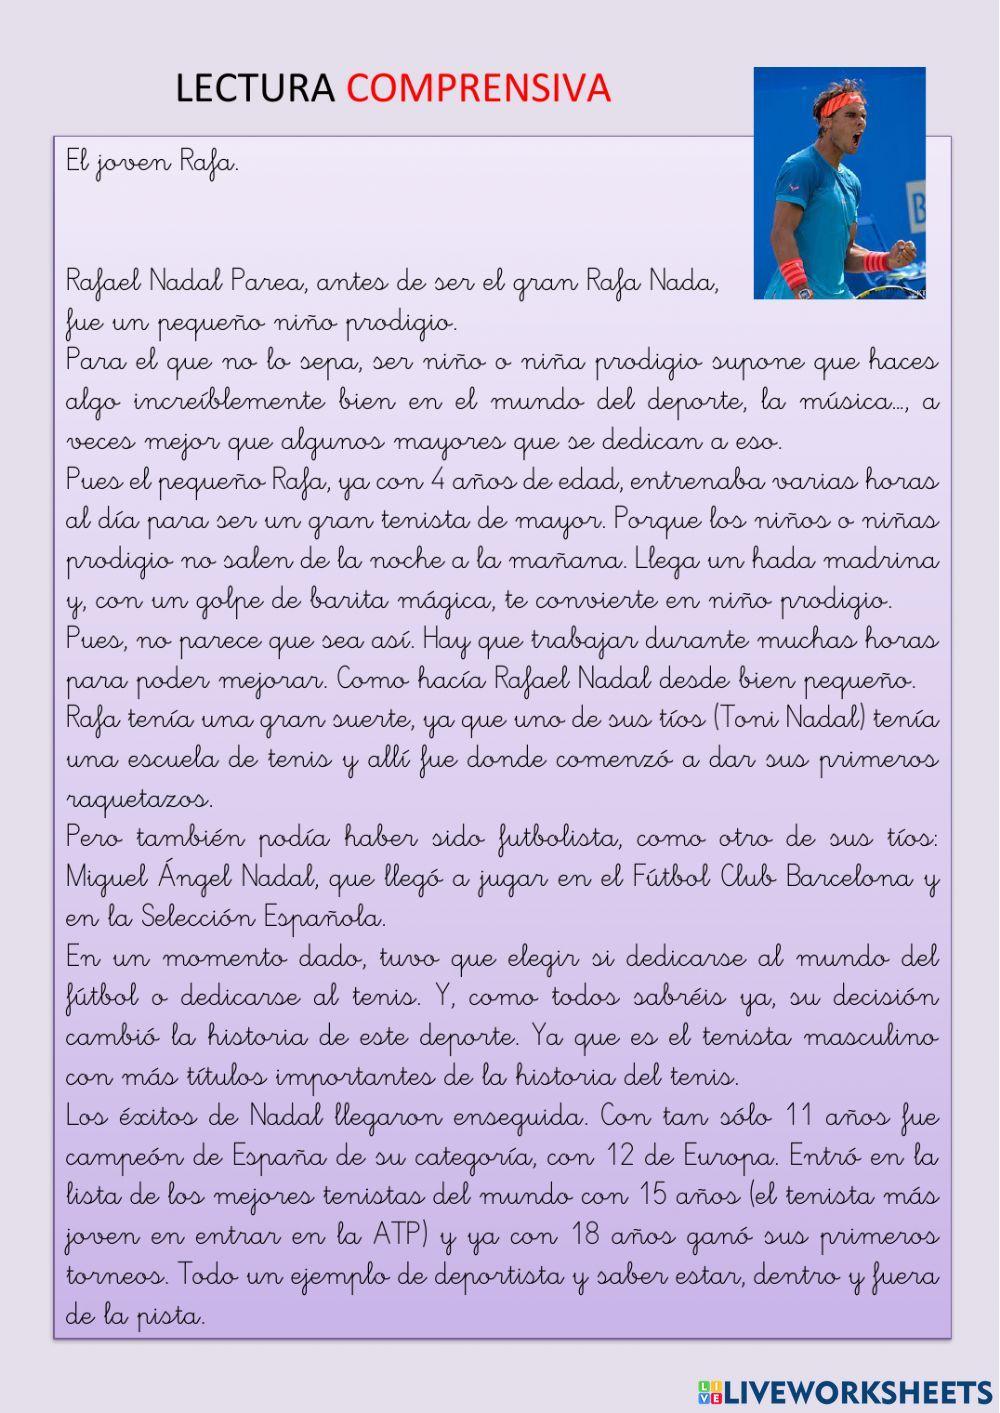 LECTURA COMPRENSIVA
El joven Rafa.
Rafael Nadal Parea, antes de ser el gran Rafa Nada,
fue un pequeño niño prodigio.
Para el que no lo sepa, ser niño o niña prodigio supone que haces
algo increíblemente bien en el mundo del deporte, la música..., a
veces mejor que algunos mayores que se dedican a eso.
Pues el pequeño Rafa, ya con 4 años de edad, entrenaba varias horas
al día para ser un gran tenista de mayor. Porque los niños o niñas
prodigio no salen de la noche a la mañana. Llega un hada madrina
y, con un golpe de barita mágica, te convierte en niño prodigio.
Pues, no parece que sea así. Hay que trabajar durante muchas horas
para poder mejorar. Como hacía Rafael Nadal desde bien pequeño.
Rafa tenía una gran suerte, ya que uno de sus tíos (Toni Nadal) tenía
una escuela de tenis y allí fue donde comenzó a dar sus primeros
raquetazos.
Pero también podía haber sido futbolista, como otro de sus tíos:
Miguel Ángel Nadal, que llegó a jugar en el Fútbol Club Barcelona y
en la Selección Española.
En un momento dado, tuvo que elegir si dedicarse al mundo del
fútbol o dedicarse al tenis. Y, como todos sabréis ya, su decisión
cambió la historia de este deporte. Ya que es el tenista masculino
con más títulos importantes de la historia del tenis.
Los éxitos de Nadal llegaron enseguida. Con tan sólo 11 años fue
campeón de España de su categoría, con 12 de Europa. Entró en la
lista de los mejores tenistas del mundo con 15 años (el tenista más
joven en entrar en la ATP) y ya con 18 años ganó sus primeros
torneos. Todo un ejemplo de deportista y saber estar, dentro y fuera
de la pista.
LIVE LIVEWORKSHEETS